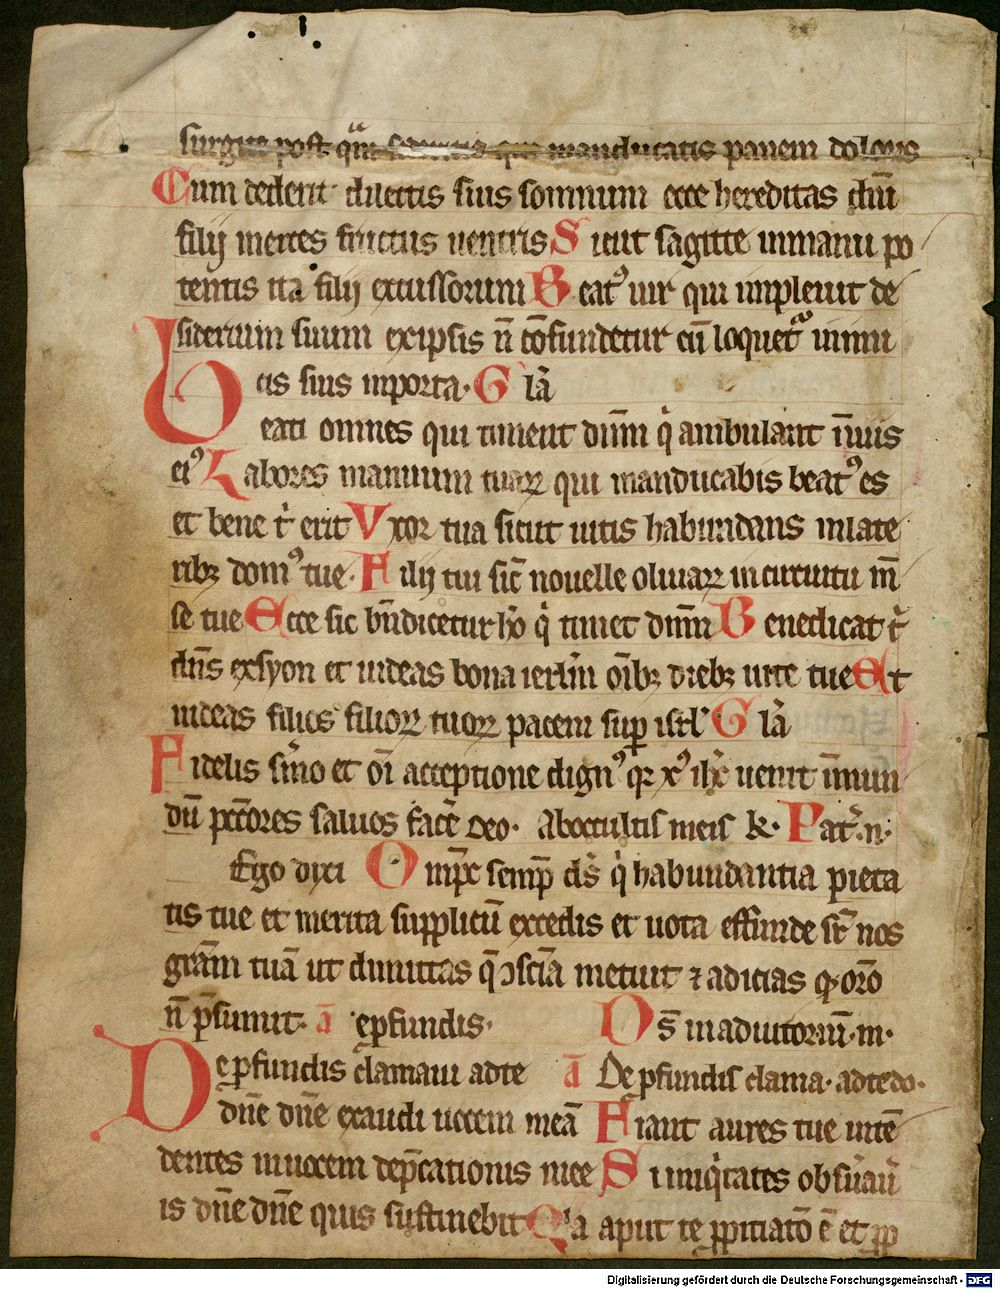 surgite post q̄m sederitis qui manducatis panem doloris
Cum dederit dilectis suis somnum ecce hereditas dn̄i
filij merces fructus uentris Sicut sagitte inmanu po
tentis ita filij excussorum Beatꝰ uir qui impleuit de
siderium suum exipsis n̄ cōfundetur cū loquetᷓ inimi
cis suis inporta· Gl̄a
Beati omnes qui timent dn̄m q̇ ambulant in uiis
eiꝰ Labores manuum tuaꝝ qui manducabis beatꝰ es
et bene t̉ erit Vxor tua sicut uitis habundans inlate
ribꝫ domꝰ tue· Filij tui sic̄ nouelle oliuaꝝ incircuitu m̄
se tue Ecce sic bn̄dicetur hō q̇ timet dn̄m Benedicat t̉
dn̄s exsyon et uideas bona ierlm̄ oībꝫ diebꝫ uite tue Et
uideas filios filioꝝ tuoꝝ pacem sup isrl̄ Gl̄a
Fidelis s̉mo et oī acceptione dignꝰ qꝛ xꝰ ih̄c uenit ī mun
dū pctōres saluos facē Deo· Aboccultis meis k· Pat̉·n·
Ego dixi Omp̄c semp ds̄ q̇ habundantia pieta
tis tue et merita supplicū excedis et uota effunde sr̄ nos
grām tuā ut dimittas q̄ ↄsciā metuit ⁊ adicias q̨ orō
n̄ p̄sumit· ā eꝓfundis· Ds̄ inadiutoriū·m·
Deꝓfundis clamaui adte ā Deꝓfundis clama· adtedo·
dn̄e dn̄e exaudi uocem meā Fiant aures tue intē
dentes inuocem dep̄cationis mee Si iniq̇tates obs̉uaủ
is dn̄e dn̄e quis sustinebit Qia aput te ꝓpitiatō ē et ꝓp
Digitalisierung gefördert durch die Deutsche Forschungsgemeinschaft - DFG